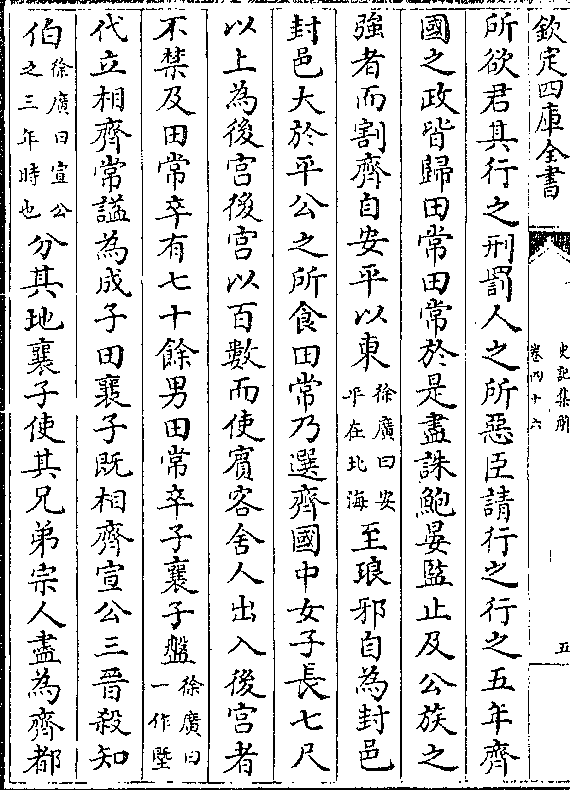 欽定四庫全書
史記集解
卷四十六
五
所欲君其行之刑罰人之所惡臣請行之行之五年齊
國之政皆歸田常田常於是盡誅鮑晏監止及公族之
強者而割齊自安平以東徐廣曰安平在北海至琅邪自為封邑
封邑大於平公之所食田常乃選齊國中女子長七尺
以上為後宮後宮以百數而使賓客舍人出入後宮者
不禁及田常卒有七十餘男田常卒子襄子盤徐廣曰一作墍
代立相齊常諡為成子田襄子既相齊宣公三晉殺知
伯徐廣曰宣公之三年時也分其地襄子使其兄弟宗人盡為齊都